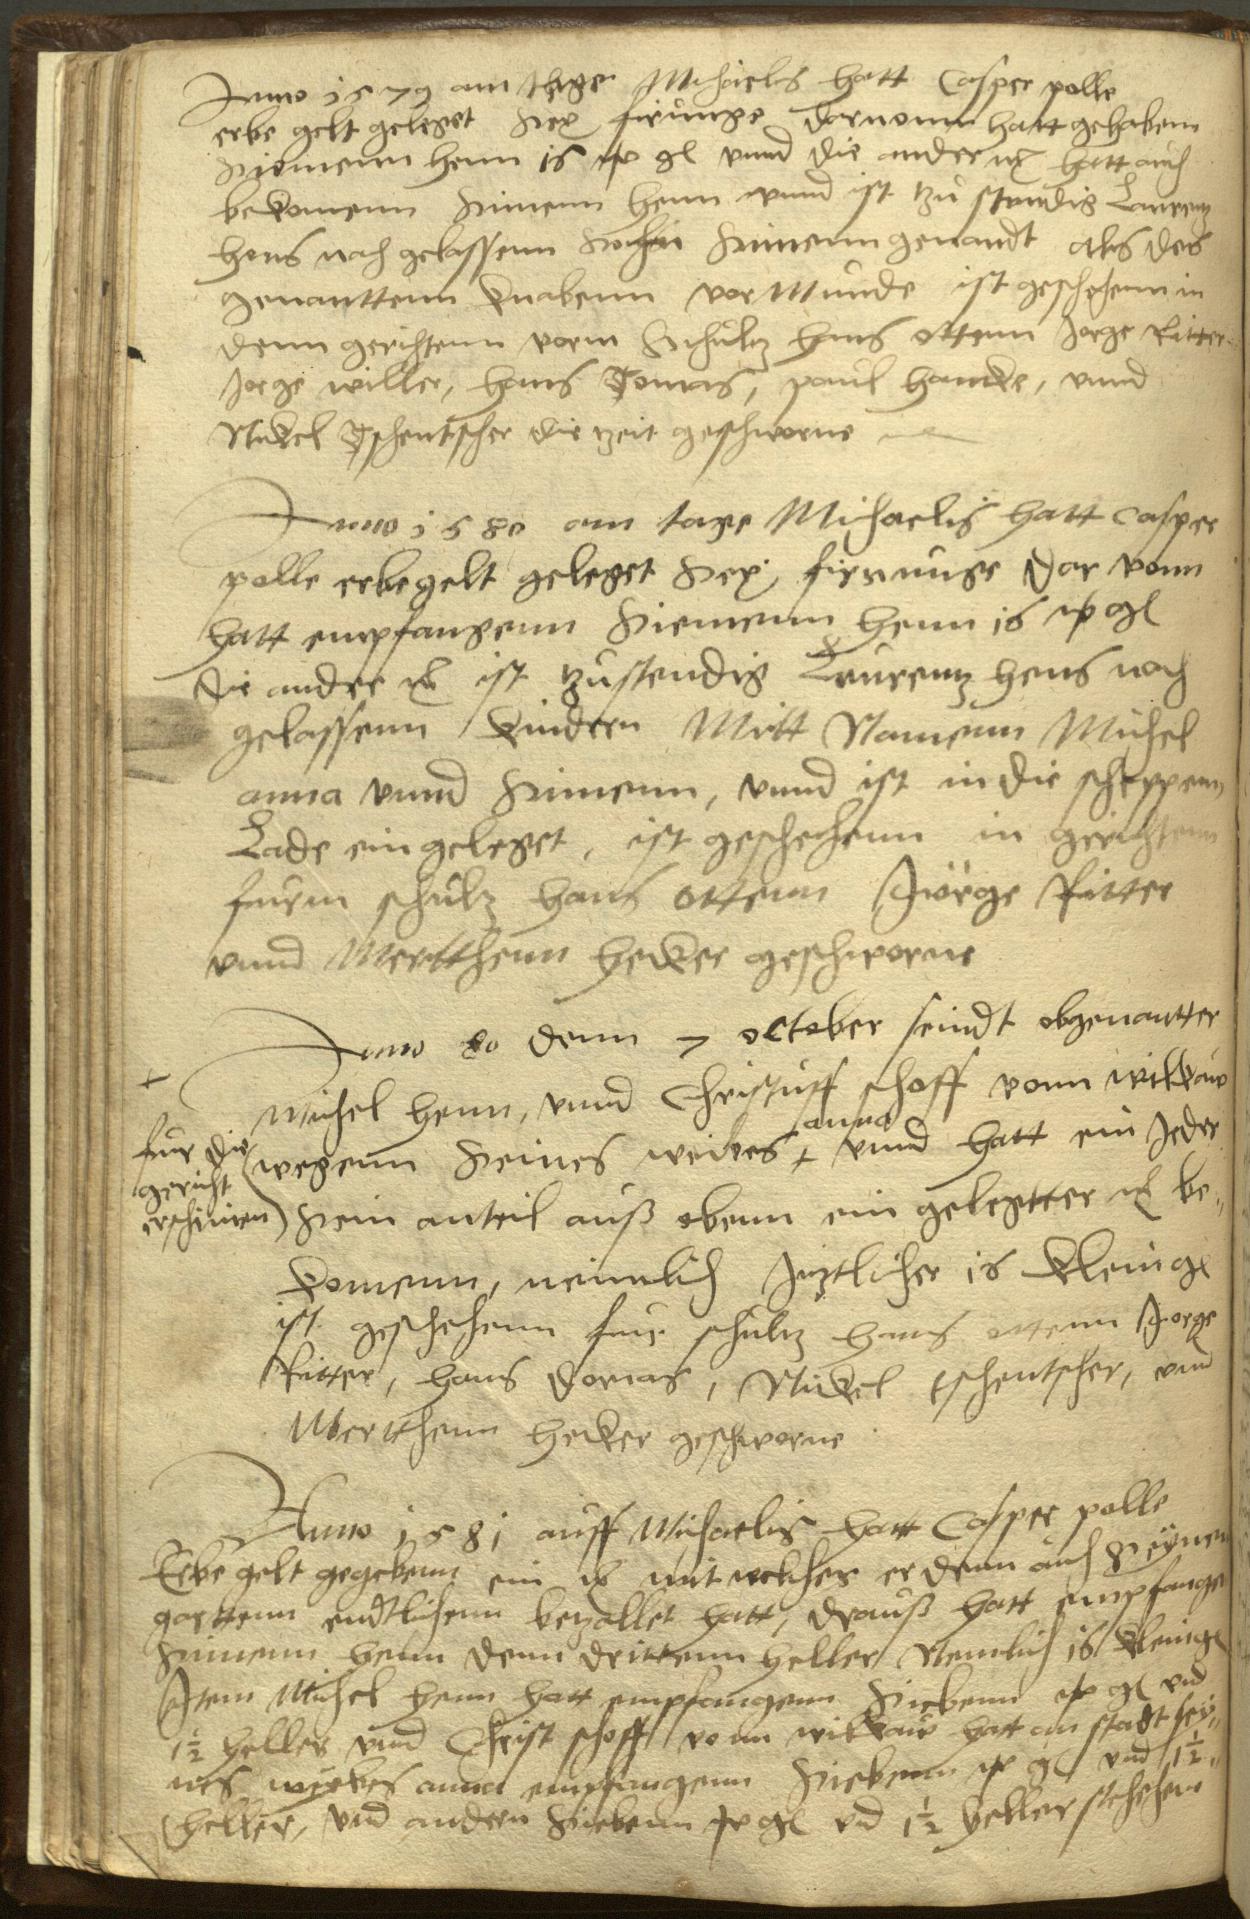 Anno 1579 am tage Michaelis hatt Casper polle
erbe gelt geleget Sex firunge Darvonn hatt gehabenn
Siemenn henn 16 gl vnnd die ander hatt auch
bekomenn Simenn henn vnnd ist tzu stendig Laurentz
hens nach gelassenn Simenn genandt als des
genanttenn knabenn vor Munde ist geschehenn in
denn gerichtenn vorm Schultz hans ottenn Jorge Ritter
Jorge willer, hans Tomas, paul hancke, vnnd
Nickel Tschentscher die tzeit geschworne
Anno 1580 am tage Michaelis hatt Casper
polle erbegelt geleget Sex firnunge Dar vonn
hatt empfangenn Siemenn henn 16 gl
die ander ist tzustendig Laurentz hens noch
gelassenn kindern Mitt Namenn Michel
anna vnnd Simenn, vnnd ist in die scheppenn
Lade ein geleget, ist geschehenn in gerichtenn
furm schultz hans ottenn Jorge Ritter
vnnd Merthenn hecker geschworne
Anno 80 denn 7 october seindt obgenantter
Michel henn, vnnd Christuff schoff vonn wilkaw
fur die gericht erschinen
wegenn Seines weibes anna vnnd hatt ein Jeder
Sein anteil auß obenn ein gelegtter be„
komenn, nemlich Jtzlicher 16 klein gl
ist geschehenn fur schultz hans ottenn Jorge
Ritter, hans Domas, Nickel tschentscher, vnd
Merthenn hecker geschworne
Anno 1581 auff Michaelis hatt Casper polle
Erbe gelt gegebenn ein mit welcher er denn auch Seynen
garttenn endtlichenn betzallet hatt, drauß hatt empfangen
Simenn henn denn drittenn heller Nemlich 16 klein gl
Item Michel henn hatt empfangenn Siebenn gl vnd
1½ heller vnd Christ schoff vonn wilkaw hatt an stadt sey„
nes weybes anna empfangenn Siebenn gl vnd 1½
heller, vnd andern Siebenn gl vnd 1½ heller